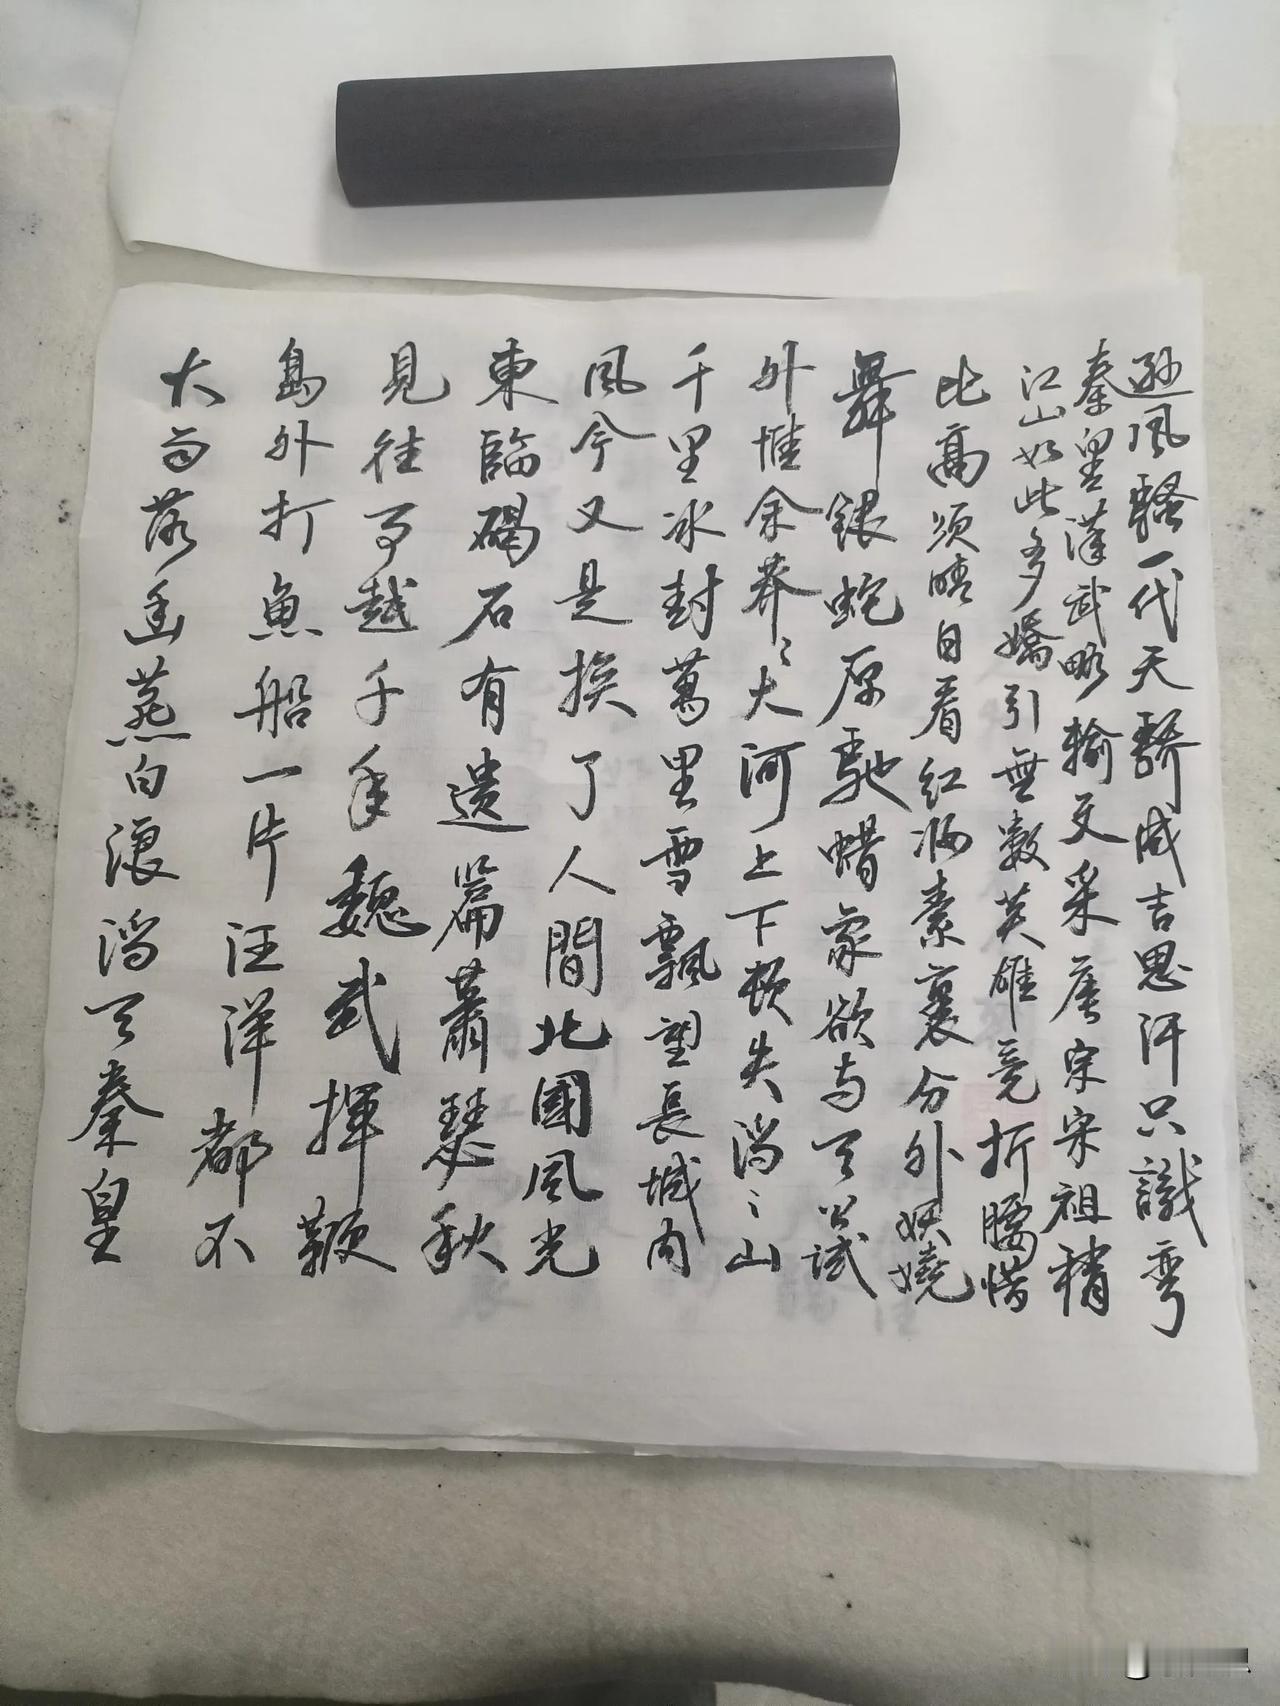 大雨落幽燕白浪滔天秦皇
島外打魚船一片汪洋都不
見往事越千年魏武揮鞭
東臨碣石有遗篇蕭瑟秋
風今又是换了人間北國風光
千里冰封萬里雪飄望長城内
外惟余莽〻大河上下頓失滔〻山
舞銀蛇原馳蜡象欲与天公試
比高須晴日看红妆素裹分外妖嬈
江山如此多嬌引無數英雄竞折腰惜
秦皇漢武略輸文采唐宗宋祖稍
遜風騷一代天驕成吉思汗只識彎